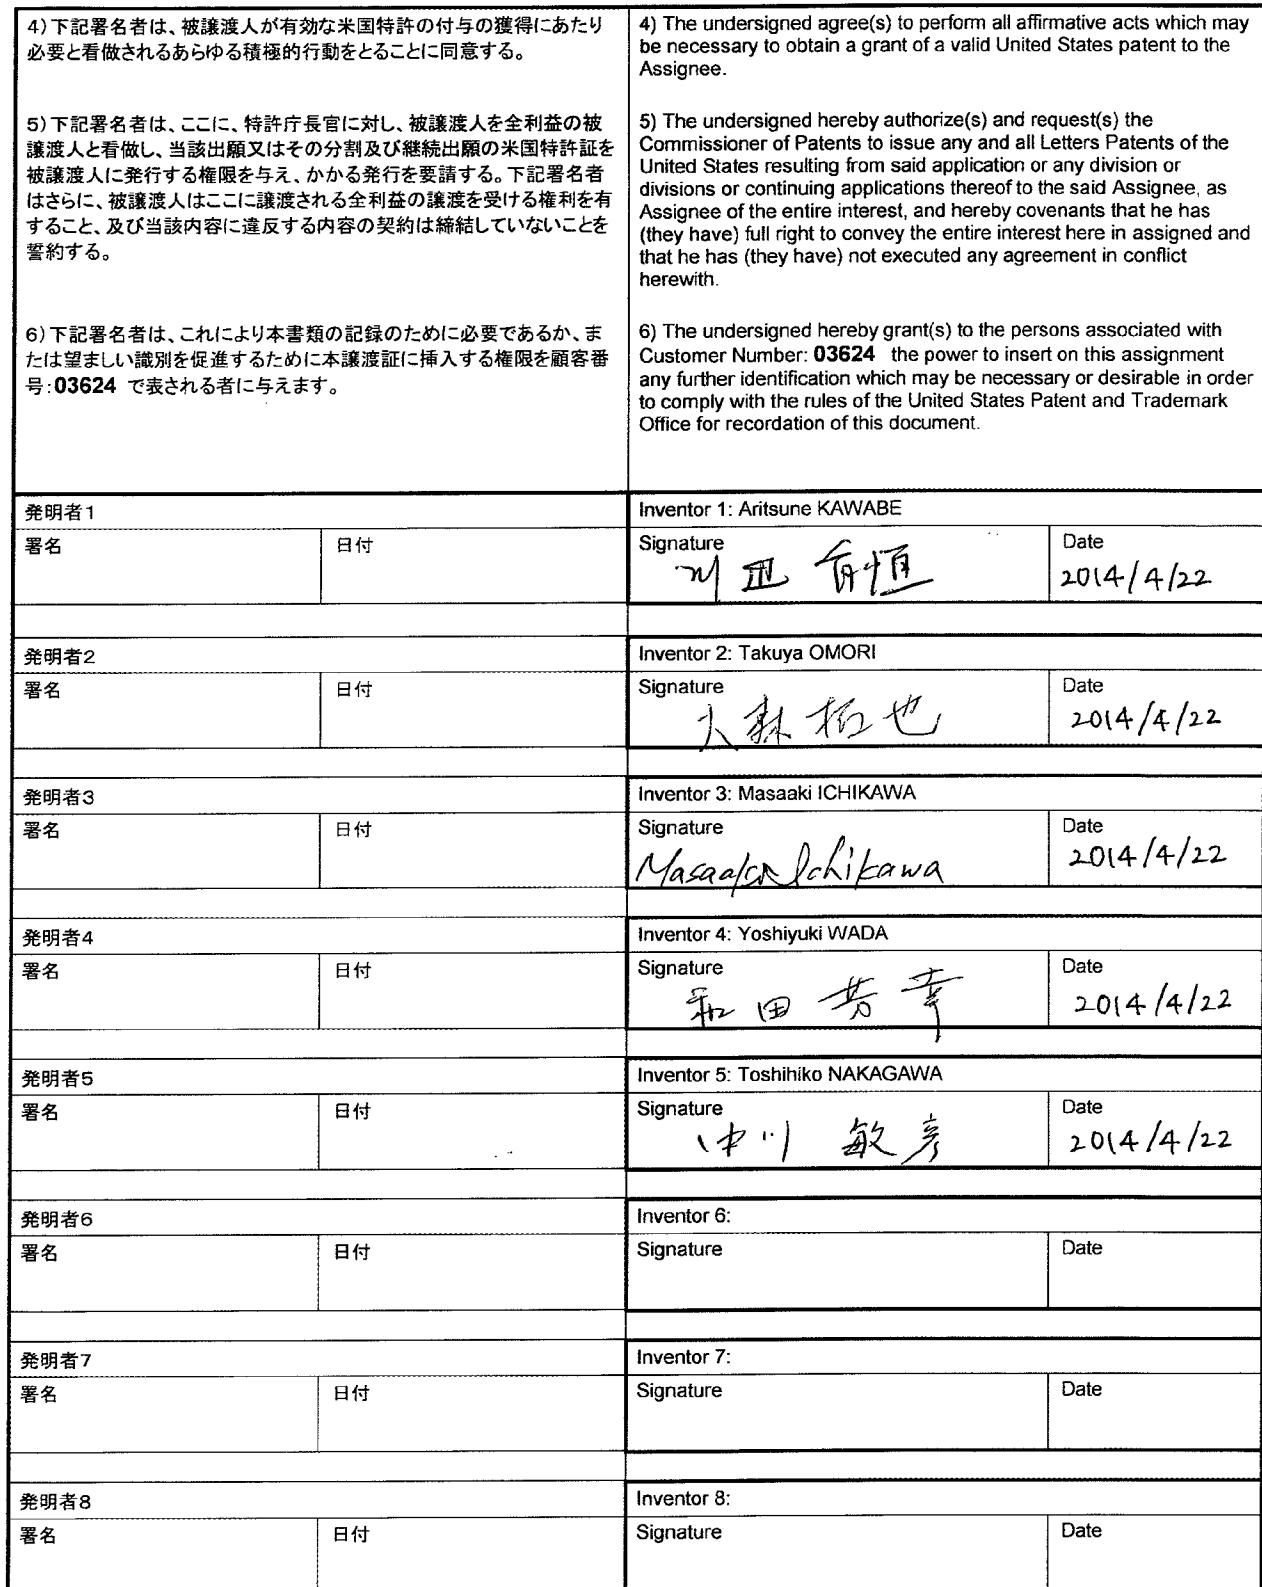 4)下記署名者は、被譲渡人が有効な米国特許の付与の獲得にあたり
必要と看做されるあらゆる積極的行動をとることに同意する。
5)下記署名者は、ここに、特許庁長官に対し、被譲渡人を全利益の被
譲渡人と看做し、当該出願又はその分割及び継続出願の米国特許証を
被譲渡人に発行する権限を与え、かかる発行を要請する。下記署名者
はさらに、被譲渡人はここに譲渡される全利益の譲渡を受ける権利を有
すること、及び当該内容に違反する内容の契約は締結していないことを
誓約する。
6)下記署名者は、これにより本書類の記録のために必要であるか、ま
たは望ましい識別を促進するために本譲渡証に挿入する権限を顧客番
号:03624 で表される者に与えます。
4) The undersigned agree(s) to perform all affirmative acts which may
be necessary to obtain a grant of a valid United States patent to the
Assignee.
5) The undersigned hereby authorize(s) and request(s) the
Commissioner of Patents to issue any and all Letters Patents of the
United States resulting from said application or any division or
divisions or continuing applications thereof to the said Assignee, as
Assignee of the entire interest, and hereby covenants that he has
(they have) full right to convey the entire interest here in assigned and
that he has (they have) not executed any agreement in conflict
herewith.
6) The undersigned hereby grant(s) to the persons associated with
Customer Number: 03624 the power to insert on this assignment
any further identification which may be necessary or desirable in order
to comply with the rules of the United States Patent and Trademark
Office for recordation of this document.
発明者1
署名
日付
Inventor 1: Aritsune KAWABE
Signature
有恒
Date
2014/4/22
発明者2
署名
日付
Inventor 2: Takuya OMORI
Signature
大森拓也
Date
2014/4/22
発明者3
署名
日付
Inventor 3: Masaaki ICHIKAWA
Signature
Masaaki Ichikawa
Date
2014/4/22
発明者4
署名
日付
Inventor 4: Yoshiyuki WADA
Signature
和田 芳幸
Date
2014/4/22
発明者5
署名
日付
Inventor 5: Toshihiko NAKAGAWA
Signature
中川 敏彦
Date
2014/4/22
発明者6
署名
日付
Inventor 6:
Signature
Date
発明者7
署名
日付
Inventor 7:
Signature
Date
発明者8
署名
日付
Inventor 8:
Signature
Date